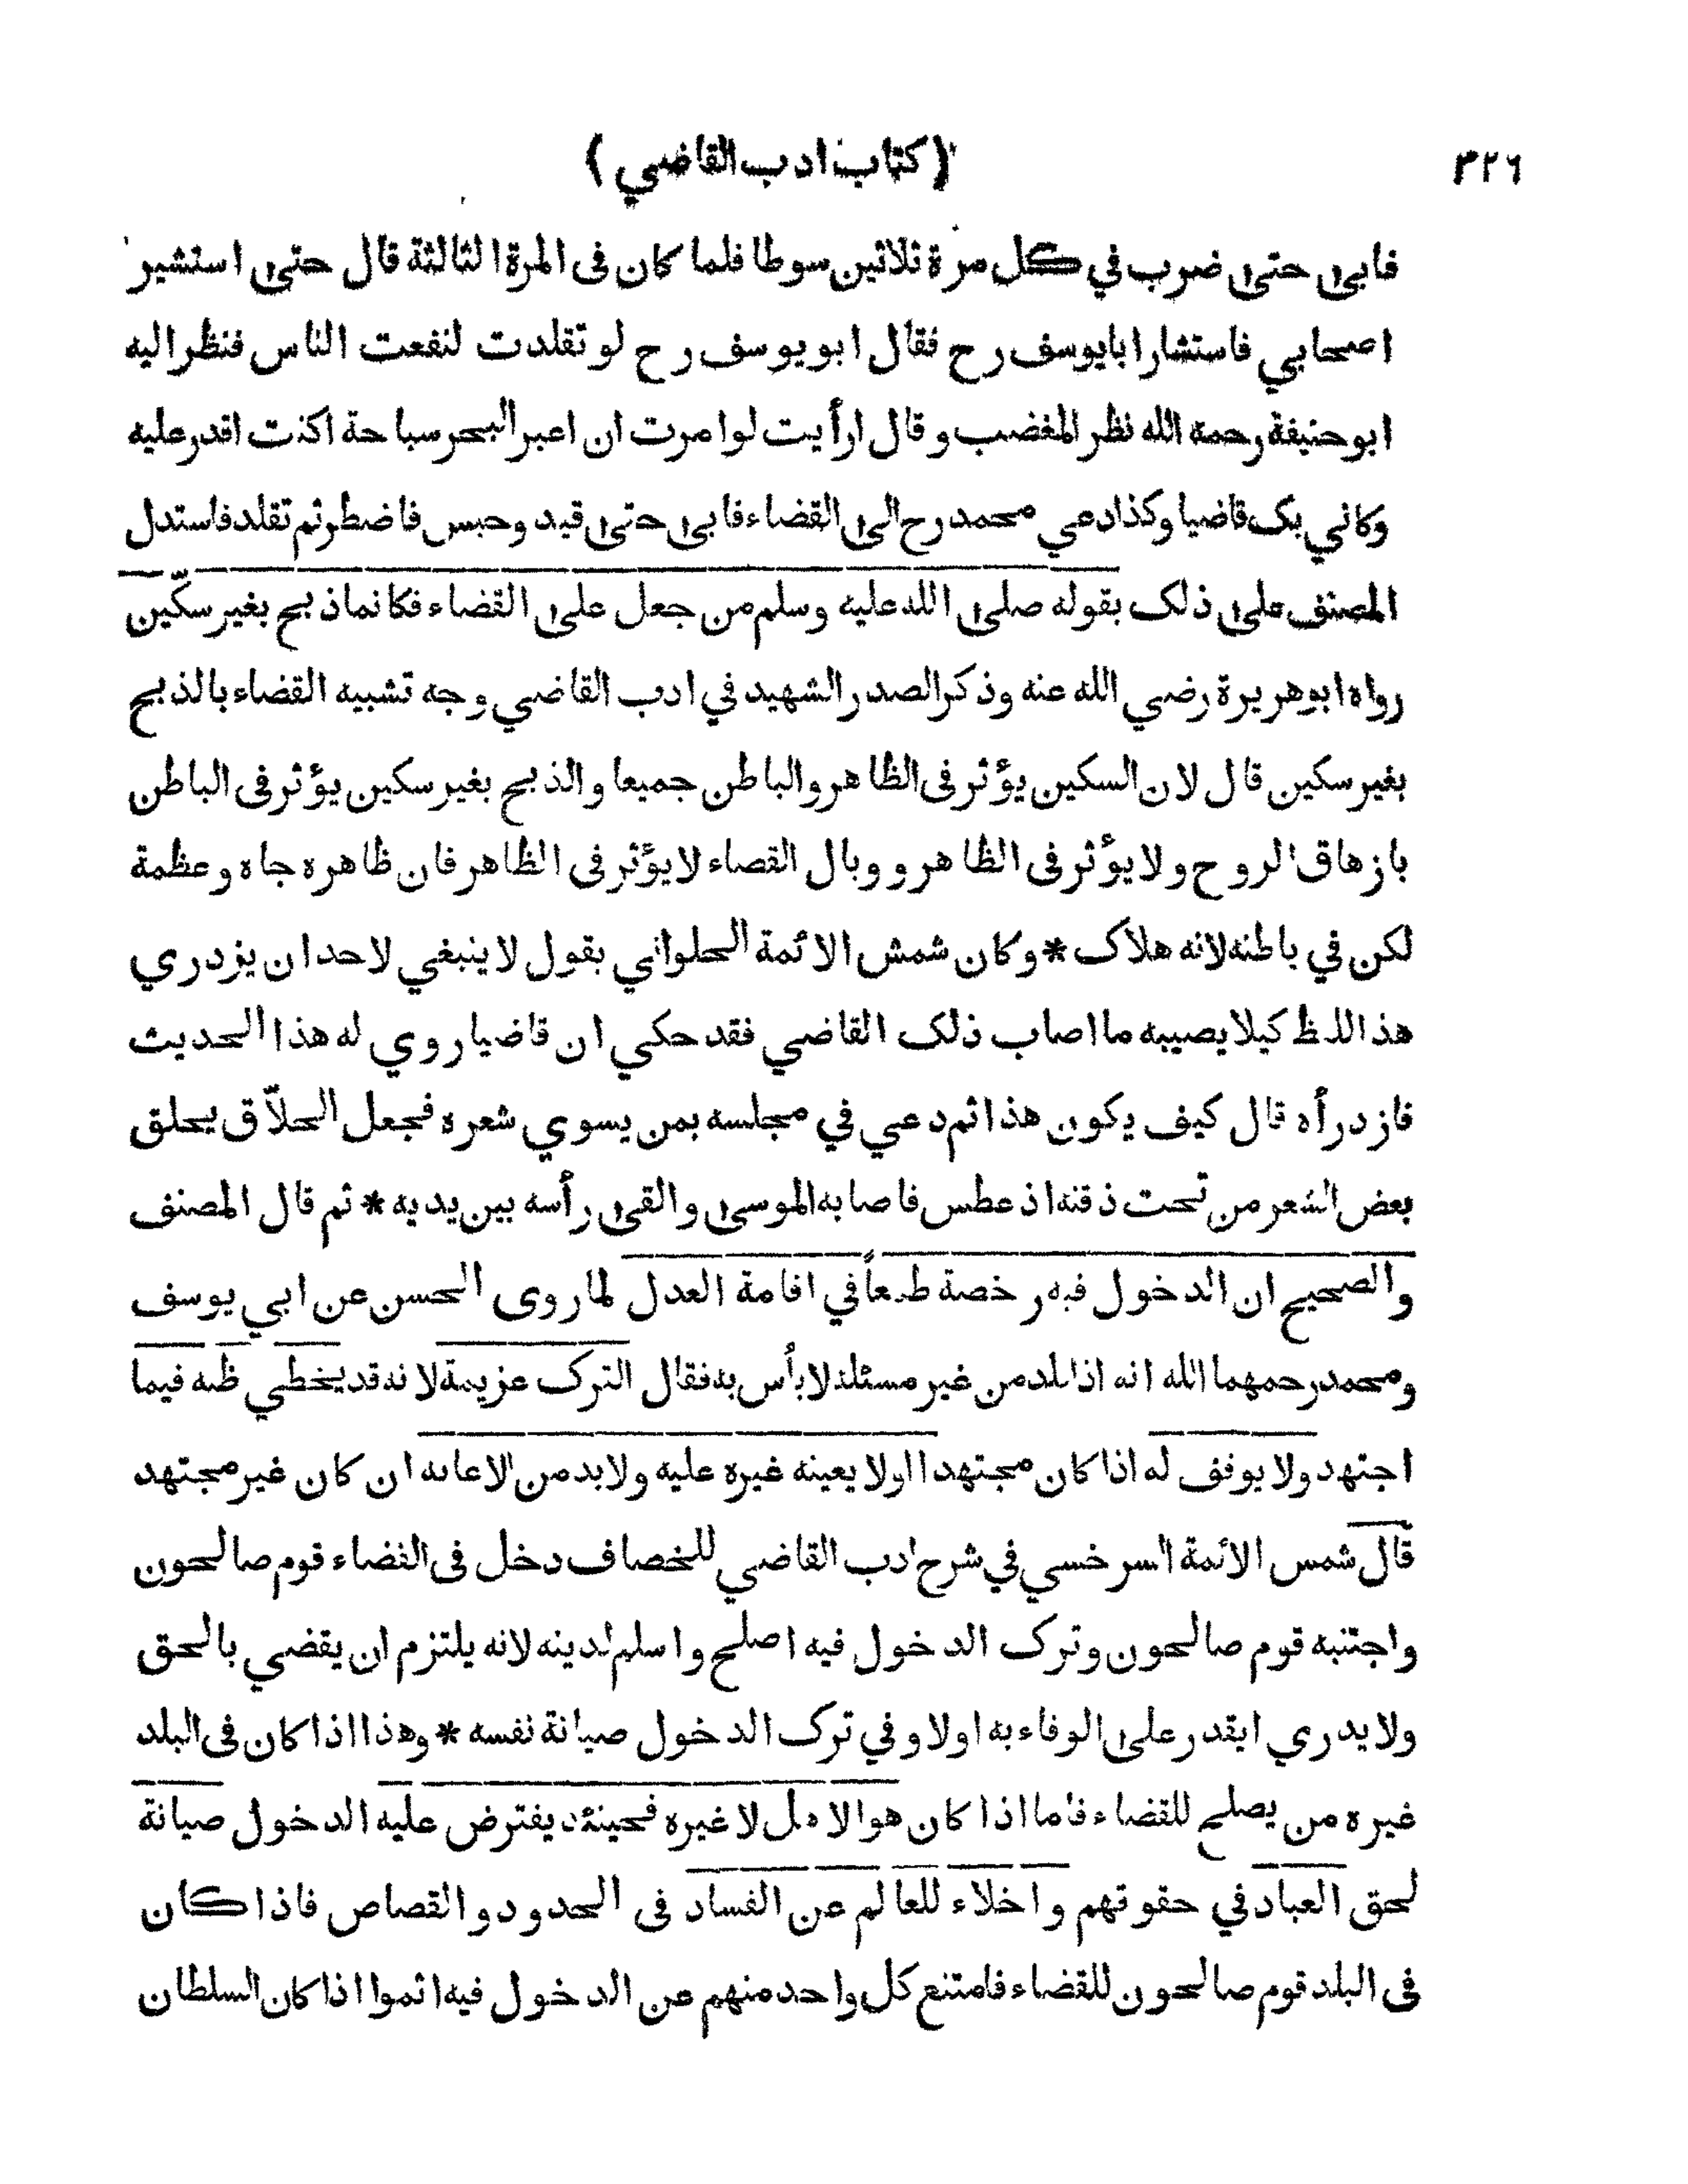 ٣٢٦
(كتاب ادب القاضي)
فابى حتى ضرب في كل مرة ثلاثين سوطا فلما كان فى المرة الثالثة قال حتى استشير
اصحابي فاستشار ابايوسف رح فقال ابو يوسف رح لو تقلدت لنفعت الناس فنظر اليه
ابوحنيفة رحمه الله نظر المغضب وقال ارأيت لوامرت ان اعبر البحر سباحة اكنت اقدر عليه
وكاني بک قاضيا وكذا دعي محمد رح الى القضاء فابى حتى قيد وحبس فاضطر ثم تقلد فاستدل
المصنف على ذلک بقوله صلى الله عليه وسلم من جعل على القضاء فكانما ذبح بغير سكّين
رواه ابوهريرة رضي الله عنه وذكر الصدر الشهيد في ادب القاضي وجه تشبيه القضاء بالذبح
بغير سكين قال لان السكين يؤثر فى الظاهر والباطن جميعا والذبح بغير سكين يؤثر فى الباطن
بازهاق الروح ولا يؤثر فى الظاهر ووبال القصاء لا يؤثر فى الظاهر فان ظاهره جاه وعظمة
لكن في باطنه لانه هلاک * وكان شمش الائمة الحلواني بقول لا ينبغي لاحد ان يزدري
هذا اللفظ كيلا يصيبه ما اصاب ذلک القاضي فقد حكي ان قاضيا روي له هذا الحديث
فازدرأه قال كيف يكون هذا ثم دعي في مجلسه بمن يسوي شعره فجعل الحلاّق يحلق
بعض الشعر من تحت ذقنه اذ عطس فاصابه الموسى والقى رأسه بين يديه * ثم قال المصنف
والصحيح ان الدخول فيه رخصة طمعاً في اقامة العدل لما روى الحسن عن ابي يوسف
ومحمد رحمهما الله انه اذا قلد من غير مسئلة لا بأس به فقال الترک عزيمة لانه قد يخطي ظنه فيما
اجتهد ولا يوفق له اذا كان مجتهدا اولا يعينه غيره عليه ولا بد من الاعانه ان كان غير مجتهد
قال شمس الائمة السرخسي في شرح ادب القاضي للخصاف دخل فى القضاء قوم صالحون
واجتنبه قوم صالحون وترک الدخول فيه اصلح واسلم لدينه لانه يلتزم ان يقضي بالحق
ولا يدري ايقدر على الوفاء به اولا وفي ترک الدخول صيانة نفسه * وهذا اذا كان فى البلد
غيره من يصلح للقضاء فاما اذا كان هو الاهل لا غيره فحينئذ يفترض عليه الدخول صيانة
لحق العباد في حقوقهم واخلاء للعالم عن الفساد فى الحدود والقصاص فاذا كان
فى البلد قوم صالحون للقضاء فامتنع كل واحد منهم عن الدخول فيه اثموا اذا كان السلطان